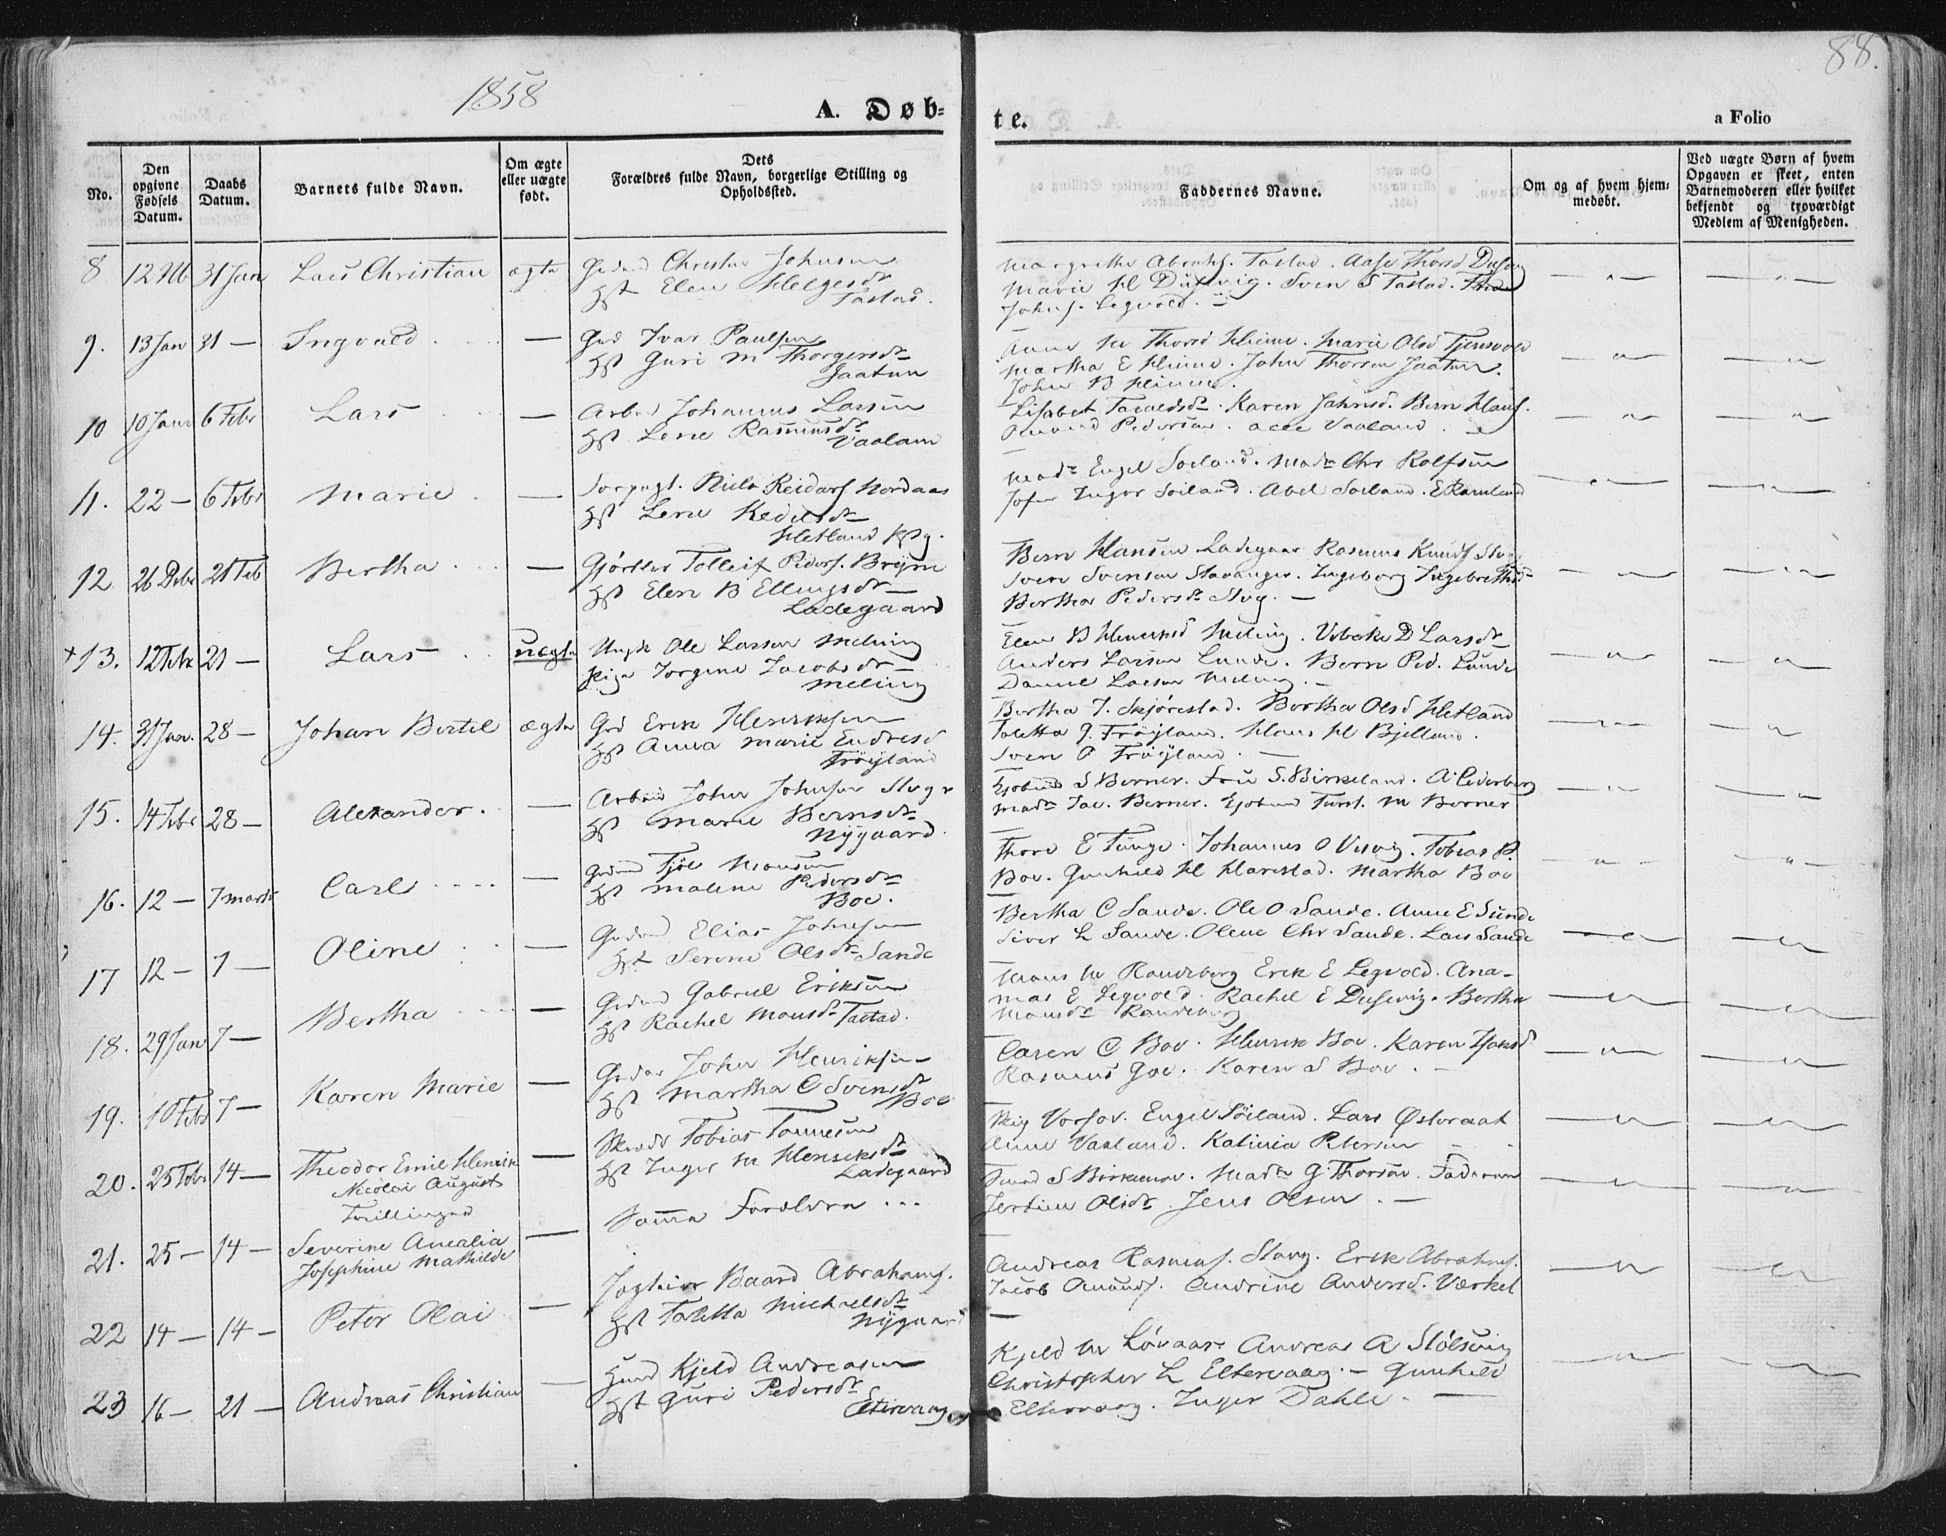 1858
A. Døb-
te.
a Folio
88.
No.
Den opgivne Fødsels Datum.
Daabs Datum.
Barnets fulde Navn.
Om ægte eller uægte født.
Dets Forældres fulde Navn, borgerlige Stilling og Opholdssted.
Faddernes Navne.
Om og af hvem hjemmedøbt.
Ved uægte Børn af hvem Opgaven er skeet, enten Barnemoderen eller hvilket bekjendt og troværdigt Medlem af Menigheden.
8 31 Jan Lars Christian ægte Christen Johnsen
Hst Elen Helgesdr
Tastad.
Margrethe Abrahs. Tastad. Aase Thorsd
Marie H Dusevig. Sven S Tastad.
Johns. Legvold.
9. 13 Jan 31 — Ingvald — Ivar Paulsen
Hst Guri M Thorgersdr
Jaatun
Thorsd Hinne. Marie Olsd Tjensvold
Martha E Hinne. John Thorsen Jaatun.
John B Hinne.
10 10 Janr 6 Febr Lars — Arbd Johannes Larsen
Hst Lene Rasmusdr
Vaaland
Lisabet Tavaldsdr. Karen Jahnsd. Bern Hans.
Pedersen. Vaaland.
11. 22 — 6 Febr Marie — Niels Reidars Nordaas
Hst Lene Kedelsdr
Hetland Psg.
Madm Engel Soeland. Madm Chr Rolfsen
Jofr Inger Soiland. Abel Soeland. E Ramland
12. 26 Debr 21 Feb Bertha — Gjørtler Tolleif Peders. Bryne
Hst Elen B Ellingsdr
Ladegaard
Bern Hansen Ladegaar Rasmus Knuds
Sven Svensen Stavanger. Ingeborg Ingebrethsdr
Bertha Pedersdr Stvg. —
+13. 12 Febr 21 — Lars uægte Ungk Ole Larsen Meling
Pige Jorgine Jacobsdr
Meling
Elen B Henriksd Meling. Vibeke D Larsdr
Anders Larsen Lunde. Bern Ped. Lunde
Daniel Larsen Meling. —
14. 31 Jan. 28 — Johan Bertel ægte Grd Erik Henriksen
Hst Anna Marie Endresd
Frøyland
Bertha T. Skjørestad. Bertha Olsd Hetland
Taletta G. Frøyland. Hans H Bjelland.
Sven O Frøyland. —
15. 14 Febr 28 — Alexander. — Arbeid John Johnsen Stvgr
Hst Marie Bernsdr
Nygaard.
S Berner. Frue S. Birkeland. A. Cederberg
Madm Jac. Berner. M Berner
16. 12 — 7 Marts Carl — Tjøl Monsen
Hst Malene Pedersdr
Boe.
Thore E Tunge. Johannes O Visvig. Tobias P.
Boe. Gunhild H Harestad. Martha Boe
17 12 — 7 — Oline — Elias Johnsen
Hst Serine Olsdr Sande
Bertha C Sande. Ole O Sande. Anne E Sunde
Siver L Sande. Olene Chr Sande. Lars Sande
18. 29 Jan 7 — Bertha — Gabriel Eriksen
Hst Rachel Monsdr Tastad.
Mons M Randeberg Erik E Legvold. Ana-
nias E Legvold. Rachel E Dusevig. Bertha
Monsdr Randeberg
19. 10 Febr 7 — Karen Marie — John Henriksen
Hst Martha C Svensdr
Boe
Caren C Boe. Henrik Boe. Karen
Rasmus Goe. Karen S Boe. —
20. 25 Febr 14 — Theodor Emil Henrik
Nicolai August
Tvillinger
— Skrædr Tobias Tønnesen
Hst Inger M Henriksdr
Ladegaard
Engel Søiland. Lars Østeraat
Anne Vaaland. Katinia Petersen
21. 25 — 14 — Severine Amalia
Josephine Mathilde
— Samme Forældre
S Birkenæs. Madm G. Thorsen. Faderen
Jertine Olsdr Jens Olsen. —
22 14 — 14 — Peter Olai — Baard Abrahams.
Hst Taletta Michaelsdr
Nygaard
Andreas Rasmus. Stavg. Erik Abrahms.
Jacob Amunds. Andrine Andersd. Værket
23 16 — 21 — Andreas Christian — Kjeld Andreasen
Hst Guri Pedersdr
Eltervaag
Kjeld M Løvaas. Andreas A Stølsvig
Christopher L Eltervaag. — Gunhild
Eltervaag. Inger Dahle. —